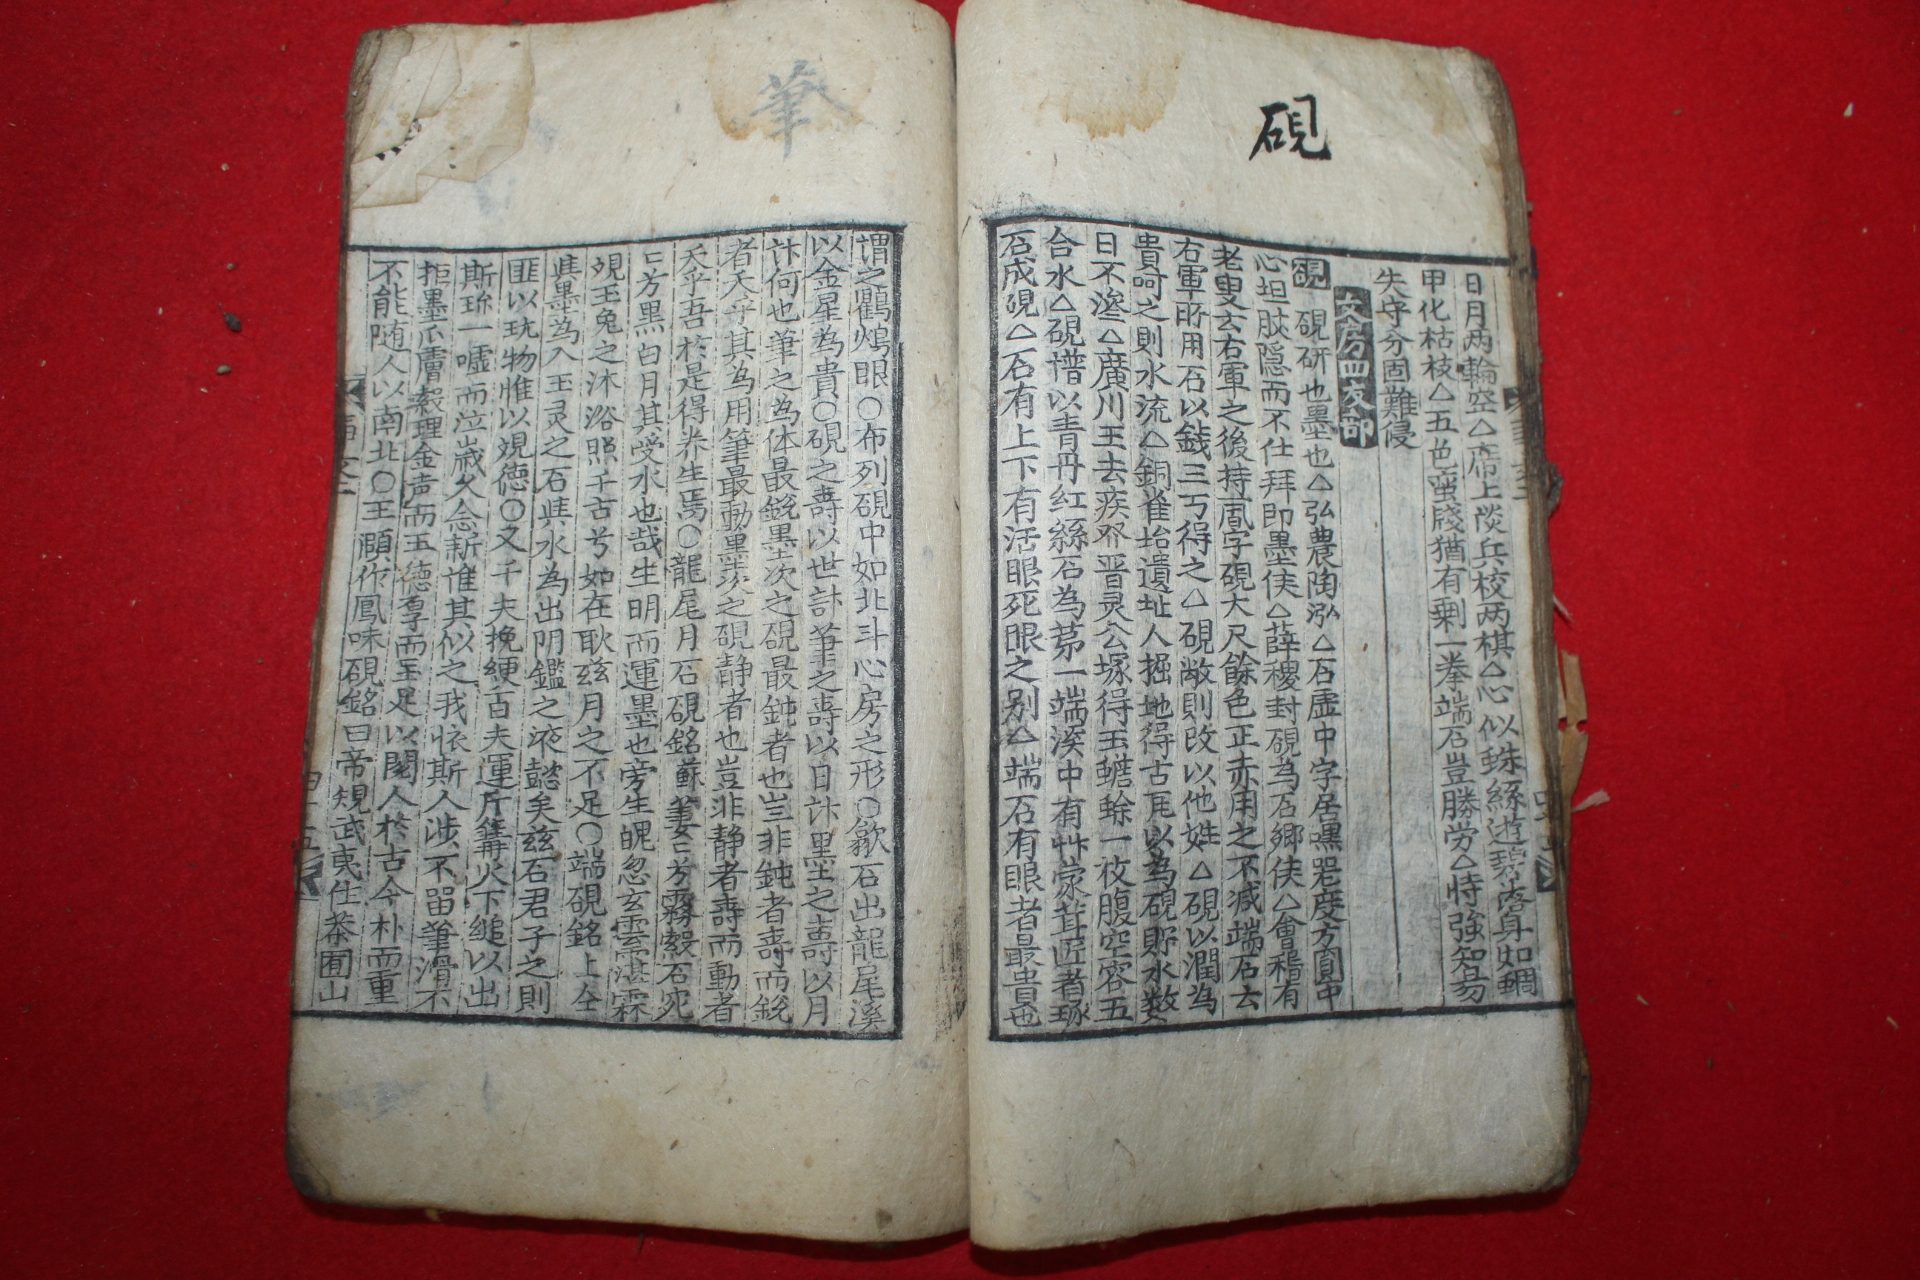 硯
日月两輪空△席上談兵校两棋△心似蛛絲遊碧落身如蜩
甲化枯枝△五色蛮牋猶有剩一拳端石豈勝労△恃強知易
失守分固難侵
文房四友部
硯 硯研也墨也△弘農陶泓△石虛中字居黙器度方圓中
心坦然隠而不仕拜即墨侯△薛稷封硯為石郷侯△會稽有
老叟云右軍之後持凰字硯大尺餘色正赤用之不减端石云
右軍所用石以錢三万得之△硯敝則改以他姓△硯以潤為
貴呵之則水流△銅雀坮遺址人掘地得古瓦以為硯貯水数
日不滲△廣川王去疾發晋灵公塚得玉蟾蜍一枚腹空容五
合水△硯譜以青丹红絲石為苐一端溪中有草蒙茸匠者琢
石成硯△石有上下有活眼死眼之别△端石有眼者最貴也
筆
謂之鸜鵒眼○布列硯中如北斗心房之形○歙石出龍尾溪
以金星為貴○硯之壽以世計筆之壽以日計墨之壽以月
計何也筆之為体最銳墨次之硯最鈍者也豈非鈍者壽而銳
者夭乎其為用筆最動墨次之硯静者也豈非静者壽而動者
夭乎吾於是得养生焉○龍尾月石硯銘蘇 萋々兮霧縠石宛
々兮黑白月其受水也哉生明而運墨也旁生魄忽玄雲湛霖
覢玉兔之沐浴照千古兮如在耿玆月之不足○端硯銘上仝
與墨為入玉灵之石與水為出阴鑑之液懿矣玆石君子之則
匪以玩物惟以覌徳○又千夫挽綆百夫運斤篝火下縋以出
斯珎一嘘而泣嵗久念新誰其似之我懷斯人涉不留筆滑不
拒墨爪膚縠理金声而玉徳厚而坚足以閱人於古今朴而重
不能随人以南北○王頤作鳳味硯銘曰帝䂓武夷作茶囿山
四十五